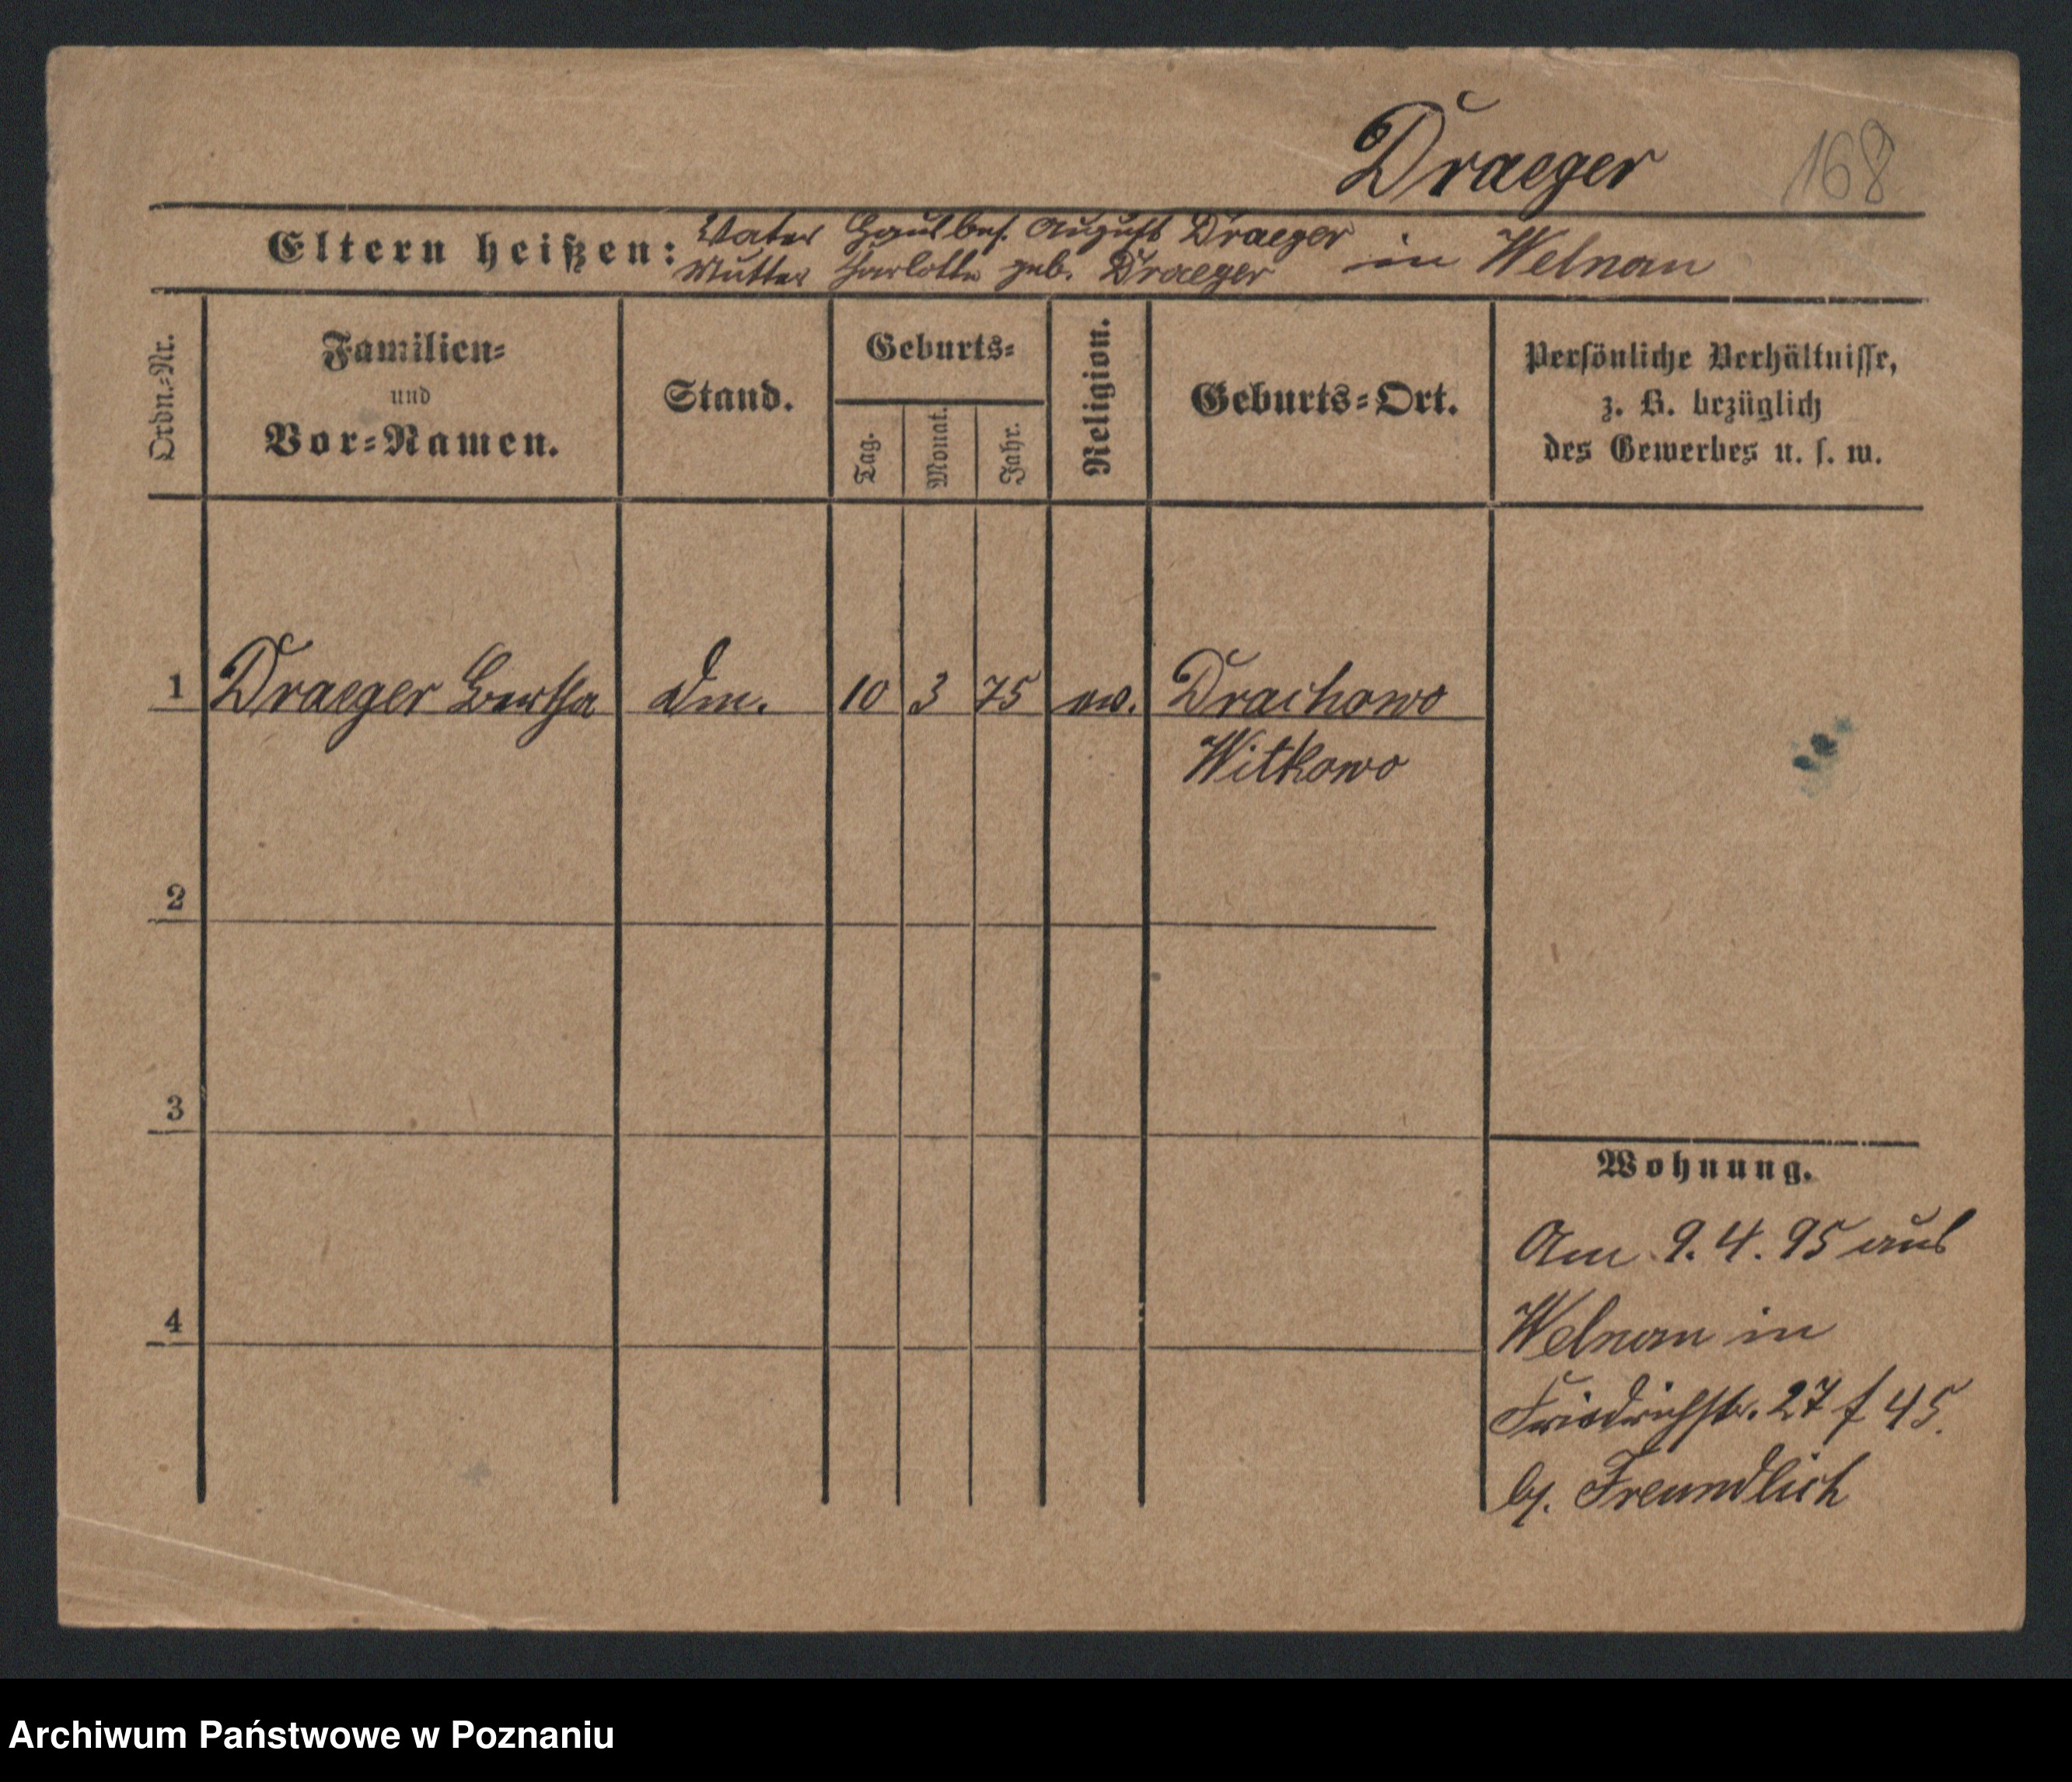 Draeger
168
Eltern heißen: Vater Hausbes. August Draeger in Welnau
Mutter Charlotte geb. Draeger
Ordn.-Nr.
Familien-
und
Vor-Namen.
Stand.
Geburts-
Tag.
Monat.
Jahr.
Religion.
Geburts-Ort.
Persönliche Verhältnisse,
z. B. bezüglich
des Gewerbes u. s. w.
1 Draeger Bertha 10 3 75 ev. Drachowo
Witkowo
2
3
4
Wohnung.
Am 9.4.95 aus
Welnau in
Friedrichstr. 27 f 45.
b/. Freundlich
Archiwum Państwowe w Poznaniu